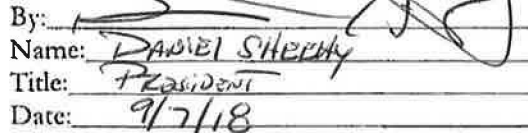 By:
Name: DANIEL SHEEHY
Title: PRESIDENT
Date: 9/7/18